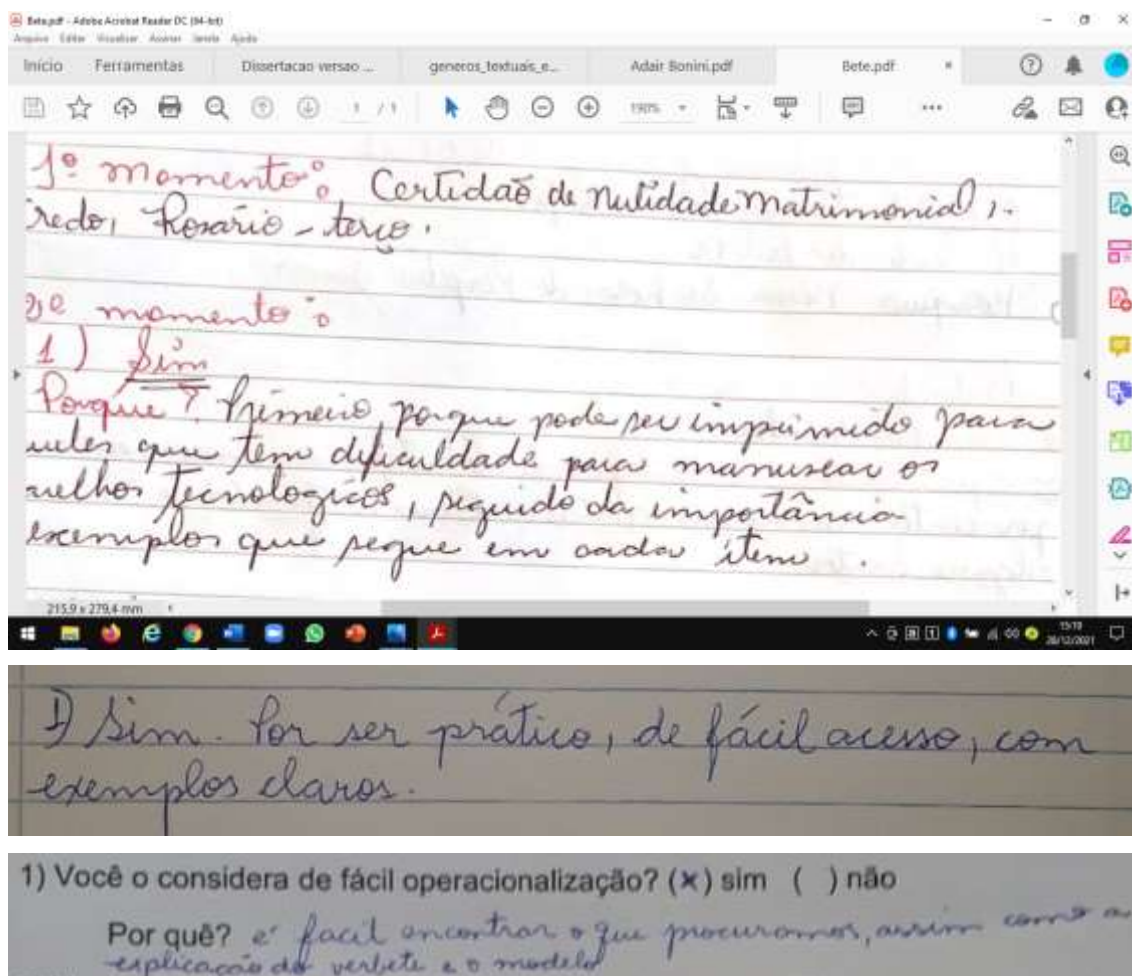 Bete.pdf - Adobe Acrobat Reader DC (64-bit)
Arquivo Editar Visualizar Assinar Janela Ajuda
Início Ferramentas Dissertacao versao ... generos_textuais_e... Adair Bonini.pdf Bete.pdf ×
1 / 1 190%
1º momento: Certidaõ de nulidade matrimonial,
redo, Rosário - terço.
2º momento:
1) Sim
Porque? Primeiro porque pode ser imprimido para
ueles que tem dificuldade para manusear os
relhos tecnologicos, seguido da importância
exemplos que segue em cada item.
215,9 x 279,4 mm
15:10
28/12/2021
1) Sim. Por ser prático, de fácil acesso, com
exemplos claros.
1) Você o considera de fácil operacionalização? (x) sim ( ) não
Por quê? é facil encontrar o que procuramos, assim como a
explicacão do verbete e o modelo